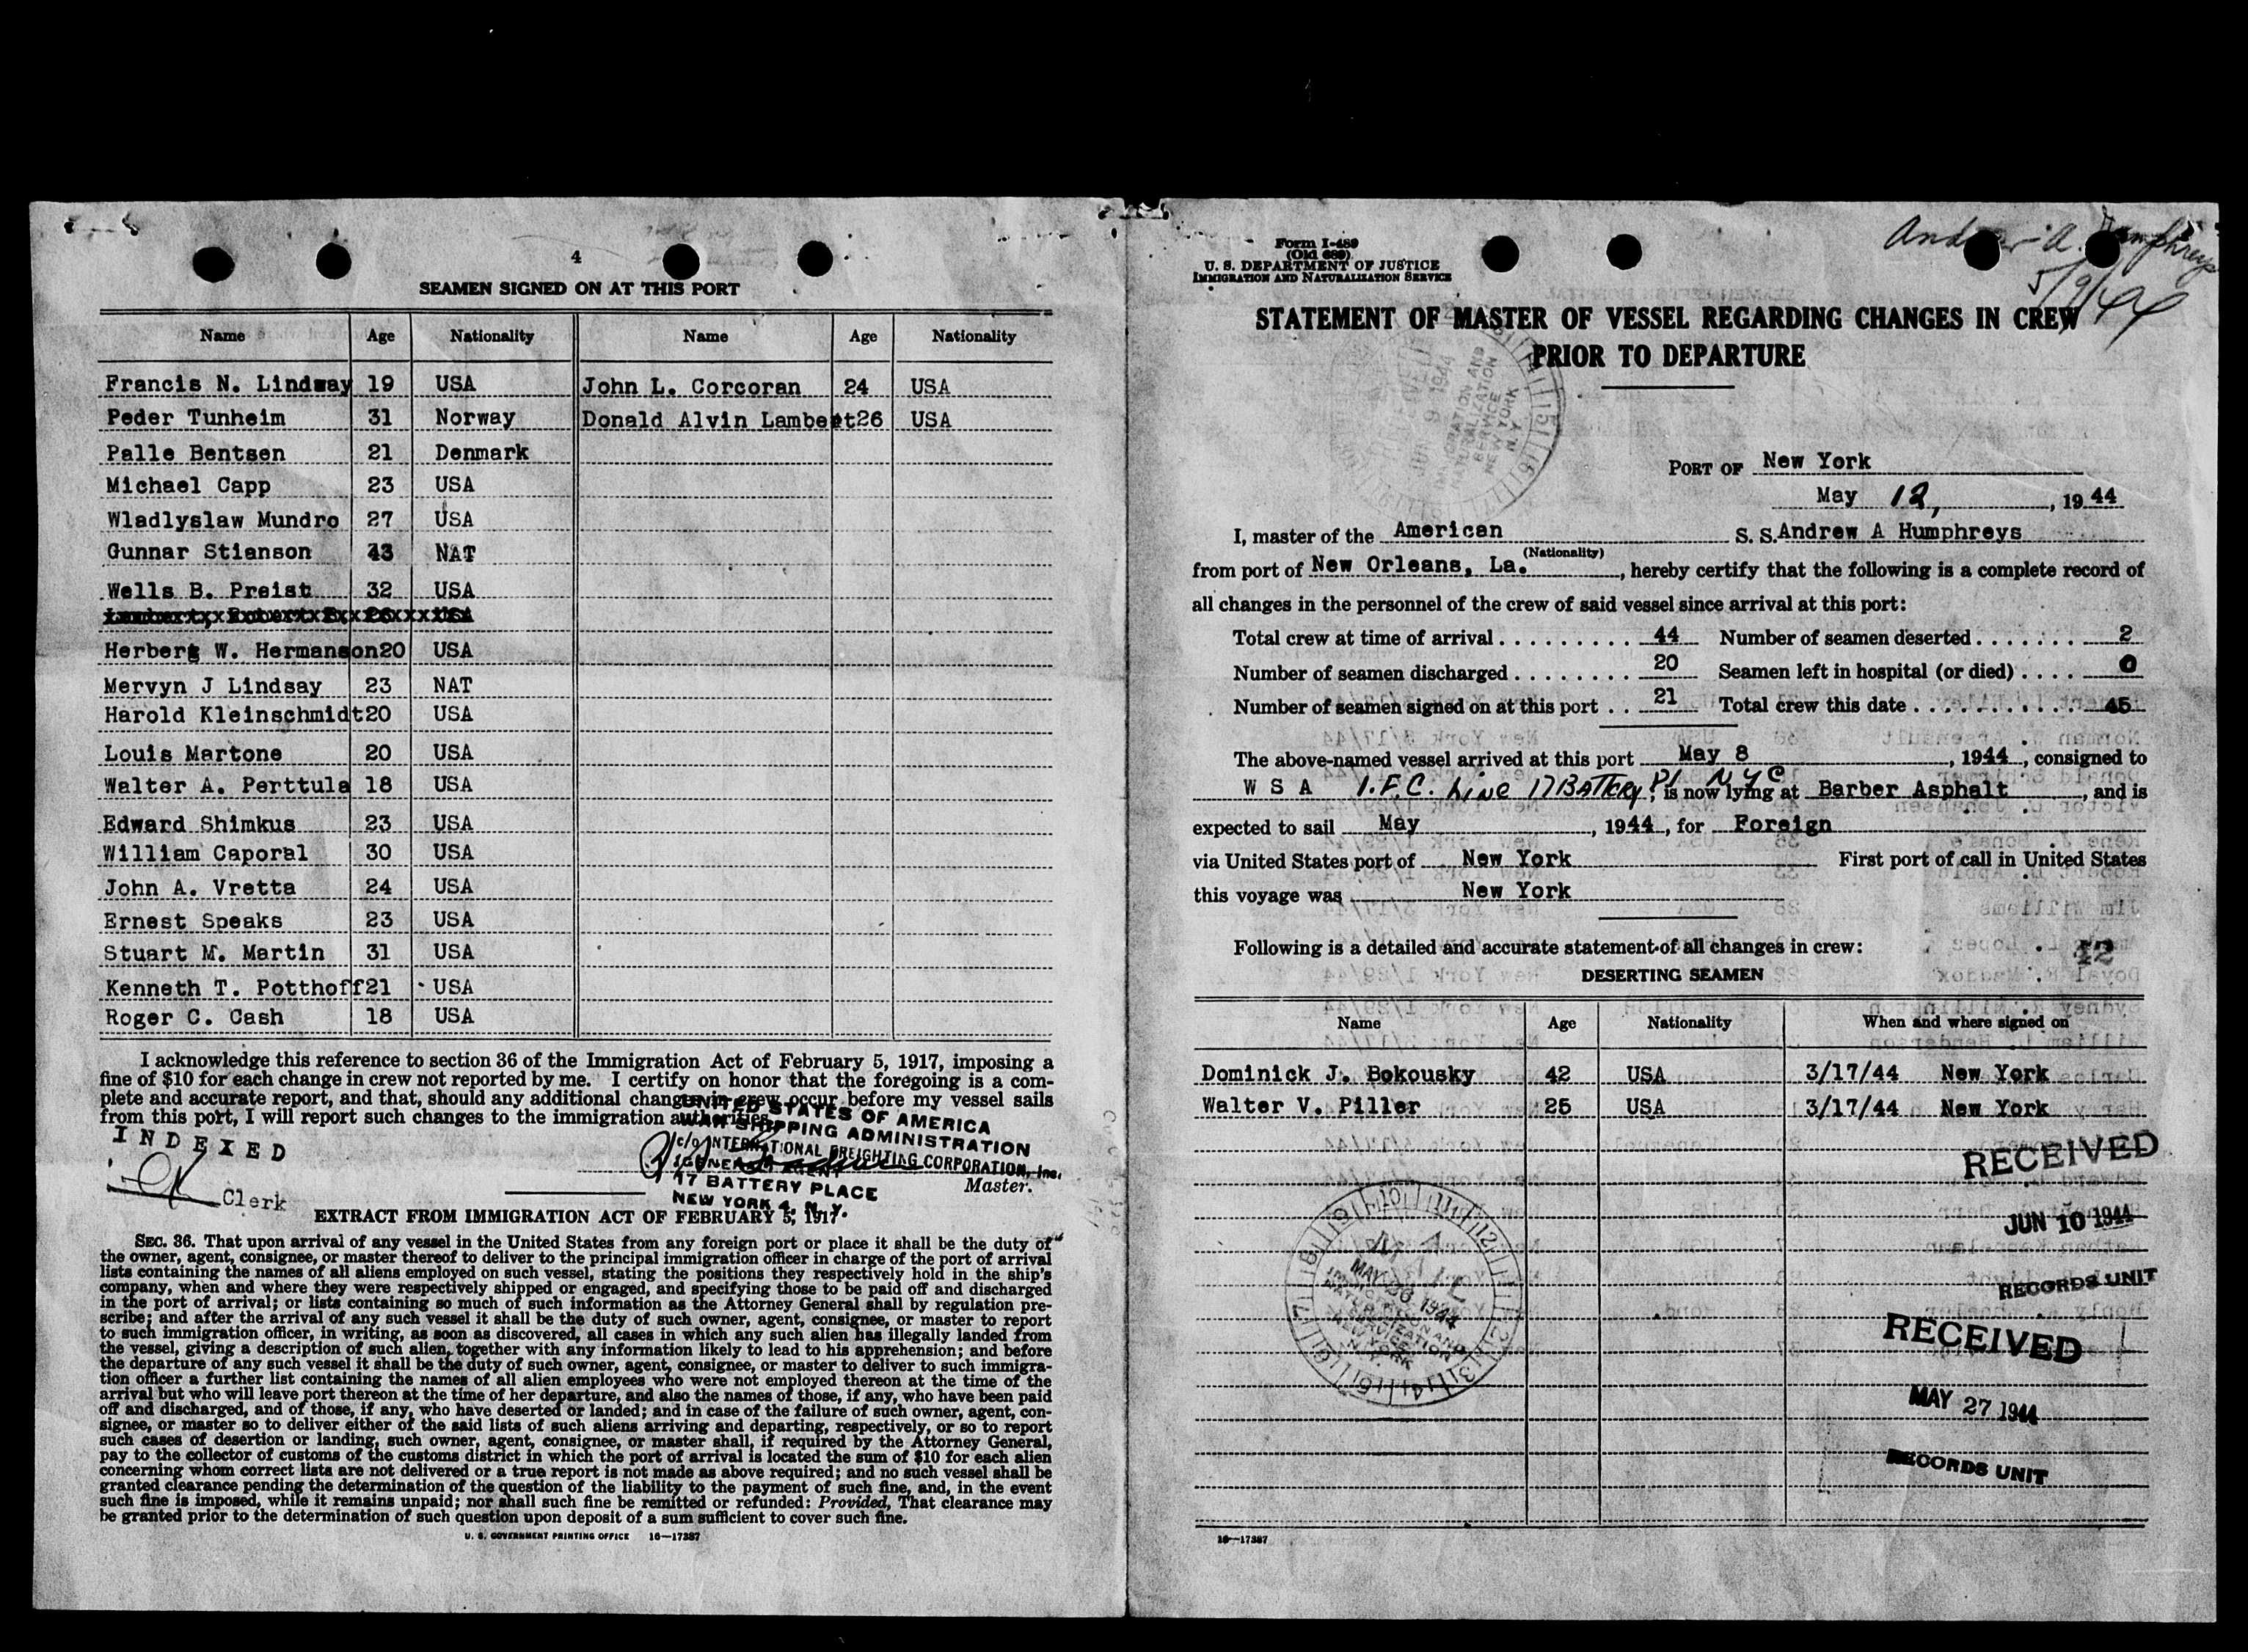 4
SEAMEN SIGNED ON AT THIS PORT
Name Age Nationality Name Age Nationality
Francis N. Lindsay 19 USA John L. Corcoran 24 USA
Peder Tunheim 31 Norway Donald Alvin Lambert 26 USA
Palle Bentsen 21 Denmark
Michael Capp 23 USA
Wladlyslaw Mundro 27 USA
Gunnar Stianson 43 NAT
Wells B. Preist 32 USA
Herbert W. Hermanson 20 USA
Mervyn J Lindsay 23 NAT
Harold Kleinschmidt 20 USA
Louis Martone 20 USA
Walter A. Perttula 18 USA
Edward Shimkus 23 USA
William Caporal 30 USA
John A. Vretta 24 USA
Ernest Speaks 23 USA
Stuart M. Martin 31 USA
Kenneth T. Potthoff 21 USA
Roger C. Cash 18 USA
I acknowledge this reference to section 36 of the Immigration Act of February 5, 1917, imposing a
fine of $10 for each change in crew not reported by me. I certify on honor that the foregoing is a com-
plete and accurate report, and that, should any additional changes in crew occur before my vessel sails
from this port, I will report such changes to the immigration authorities.
UNITED STATES OF AMERICA
WAR SHIPPING ADMINISTRATION
c/o INTERNATIONAL FREIGHTING CORPORATION, Inc.
GENERAL AGENT
17 BATTERY PLACE
NEW YORK 4, N. Y.
Master.
INDEXED
Clerk
EXTRACT FROM IMMIGRATION ACT OF FEBRUARY 5, 1917.
SEC. 36. That upon arrival of any vessel in the United States from any foreign port or place it shall be the duty of
the owner, agent, consignee, or master thereof to deliver to the principal immigration officer in charge of the port of arrival
lists containing the names of all aliens employed on such vessel, stating the positions they respectively hold in the ship's
company, when and where they were respectively shipped or engaged, and specifying those to be paid off and discharged
in the port of arrival; or lists containing so much of such information as the Attorney General shall by regulation pre-
scribe; and after the arrival of any such vessel it shall be the duty of such owner, agent, consignee, or master to report
to such immigration officer, in writing, as soon as discovered, all cases in which any such alien has illegally landed from
the vessel, giving a description of such alien, together with any information likely to lead to his apprehension; and before
the departure of any such vessel it shall be the duty of such owner, agent, consignee, or master to deliver to such immigra-
tion officer a further list containing the names of all alien employees who were not employed thereon at the time of the
arrival but who will leave port thereon at the time of her departure, and also the names of those, if any, who have been paid
off and discharged, and of those, if any, who have deserted or landed; and in case of the failure of such owner, agent, con-
signee, or master so to deliver either of the said lists of such aliens arriving and departing, respectively, or so to report
such cases of desertion or landing, such owner, agent, consignee, or master shall, if required by the Attorney General,
pay to the collector of customs of the customs district in which the port of arrival is located the sum of $10 for each alien
concerning whom correct lists are not delivered or a true report is not made as above required; and no such vessel shall be
granted clearance pending the determination of the question of the liability to the payment of such fine, and, in the event
such fine is imposed, while it remains unpaid; nor shall such fine be remitted or refunded: Provided, That clearance may
be granted prior to the determination of such question upon deposit of a sum sufficient to cover such fine.
U. S. GOVERNMENT PRINTING OFFICE 16—17387
Form I-489
(Old 689)
U. S. DEPARTMENT OF JUSTICE
IMMIGRATION AND NATURALIZATION SERVICE
Andrew A. Humphreys
5/9/44
STATEMENT OF MASTER OF VESSEL REGARDING CHANGES IN CREW
PRIOR TO DEPARTURE
JUN 9 1944
IMMIGRATION AND
NATURALIZATION
SERVICE
NEW YORK
N. Y.
PORT OF New York
May 12, , 1944
I, master of the American S. S. Andrew A Humphreys
(Nationality)
from port of New Orleans, La. , hereby certify that the following is a complete record of
all changes in the personnel of the crew of said vessel since arrival at this port:
Total crew at time of arrival 44 Number of seamen deserted 2
Number of seamen discharged 20 Seamen left in hospital (or died) 0
Number of seamen signed on at this port 21 Total crew this date 45
The above-named vessel arrived at this port May 8 , 1944 , consigned to
W S A I.F.C. Line 17 Battery Pl N Y C , is now lying at Barber Asphalt , and is
expected to sail May , 1944 , for Foreign
via United States port of New York First port of call in United States
this voyage was New York
Following is a detailed and accurate statement of all changes in crew:
42
DESERTING SEAMEN
Name Age Nationality When and where signed on
Dominick J. Bokousky 42 USA 3/17/44 New York
Walter V. Piller 25 USA 3/17/44 New York
RECEIVED
JUN 10 1944
RECORDS UNIT
MAIL
MAY 26 1944
IMMIGRATION AND
NATURALIZATION
SERVICE
NEW YORK
N. Y.
RECEIVED
MAY 27 1944
RECORDS UNIT
16—17387